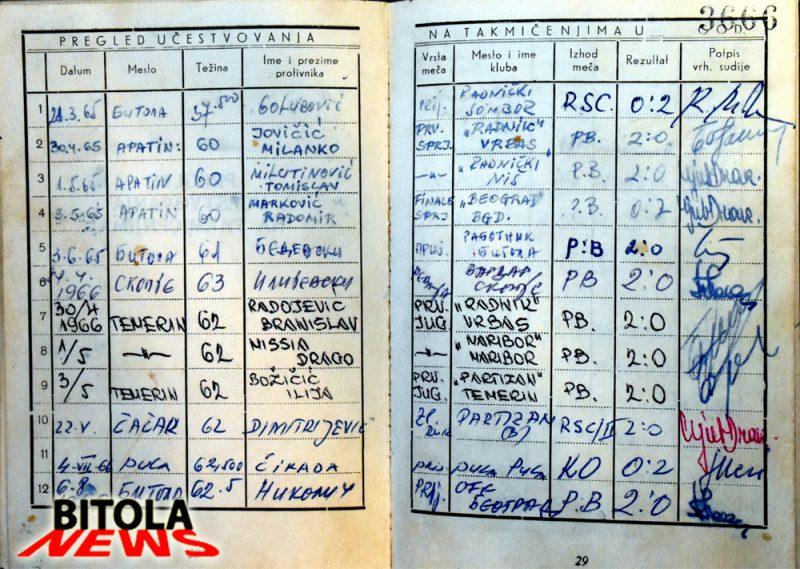 PREGLED UČESTVOVANJA
NA TAKMIČENJIMA U GOD.
3666
Datum Mesto Težina Ime i prezime protivnika
Vrsta meča Mesto i ime kluba Izhod meča Rezultat Potpis vrh. sudije
1 28.3.65 БИТОЛА 57.500 GOLUBOVIĆ PRIJ. RADNIČKI SOMBOR RSC. 0:2
2 30.4.65 APATIN: 60 JOVIČIĆ MILANKO PRV. SRJ. "RADNIK" VRBAS P.B. 2:0
3 1.5.65 APATIN 60 MILUTINOVIĆ TOMISLAV -"- "RADNIČKI NIŠ P.B. 2:0
4 2.5.65 APATIN 60 MARKOVIĆ RADOMIR FINALE SPRJ "BEOGRAD" BGD. P.B. 0:2
5 3.6.65 БИТОЛА 61 РАБОТНИК БИТОЛА P:B 2:0
6 1966 СКОПЈЕ 63 ИЛИЕВСКИ ВАРДАР СКОПЈЕ PB 2:0
7 30/4 1966 TEMERIN 62 RADOJEVIC BRANISLAV PRV. JUG. "RADNIK" VRBAS P.B. 2:0
8 1/5 -"- 62 NISSIA DRAGO -"- "MARIBOR" MARIBOR P.B. 2:0
9 3/5 TEMERIN 62 BOŽIČIĆ ILIJA PRV. JUG. "PARTIZAN" TEMERIN P.B. 2:0
10 22.V. ČAČAK 62 DIMITRIJEVIĆ PARTIZAN RSC/II 2:0
11 4.VII.66 PULA 62,500 ČIKADA PRIJ PULA PULA KO 0:2
12 6.8 БИТОЛА 62.5 НИКОЛИЧ PRIJ. OFK БЕОГРАД P.B 2:0
BITOLA
NEWS
29